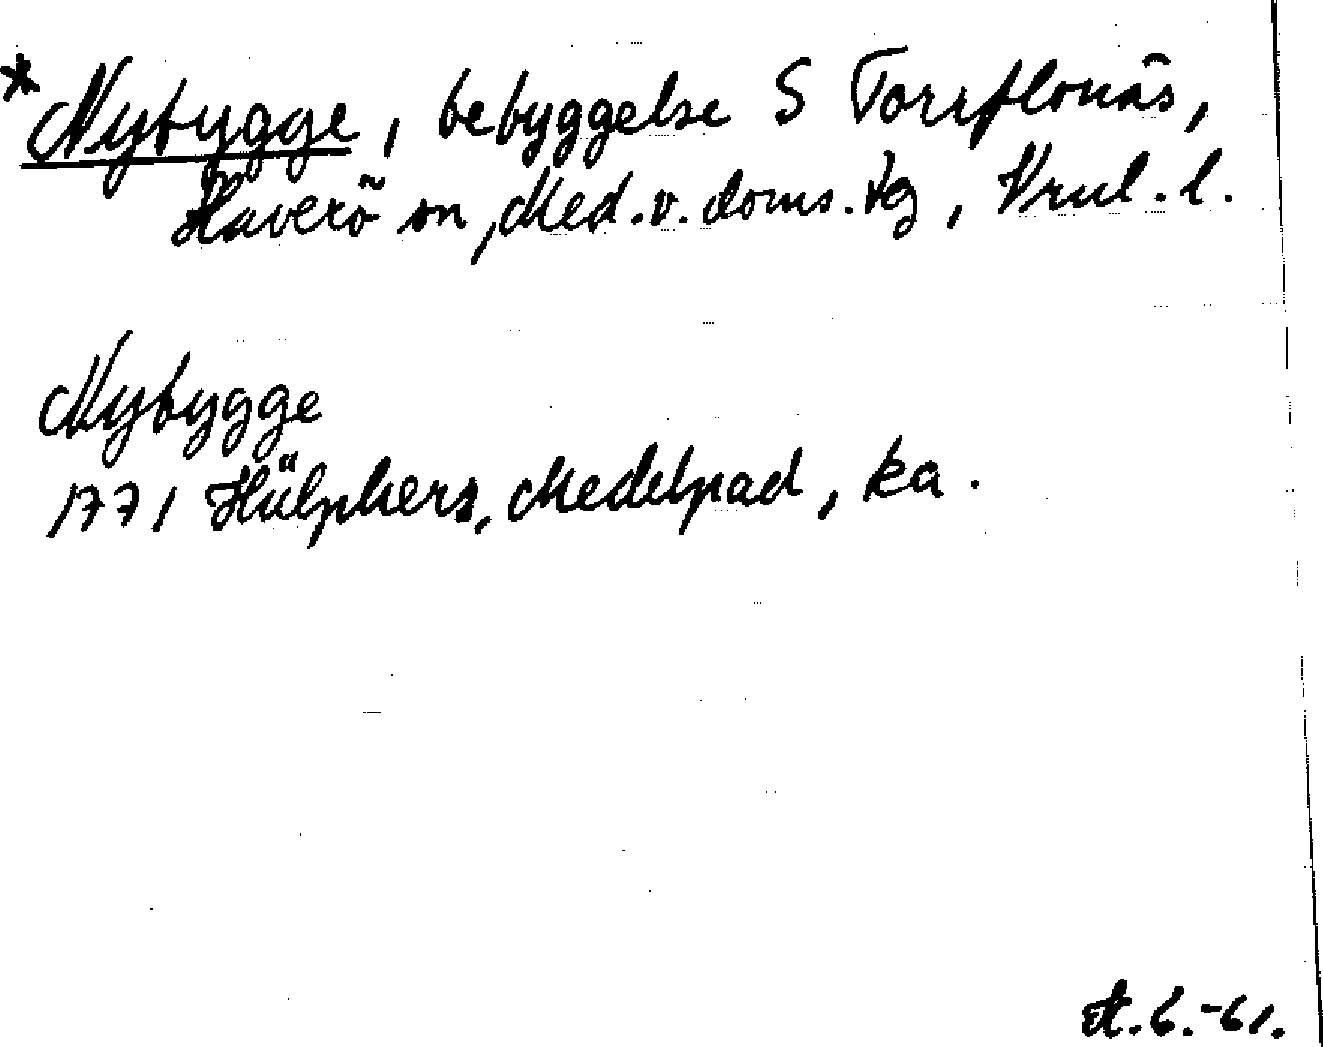 * Nybygge, bebyggelse S Torrflonäs,
Haverö sn, Med. v. doms. tg, Vnl. l.
Nybygge
1771 Hülphers, Medelpad, ka.
A. G. -61.